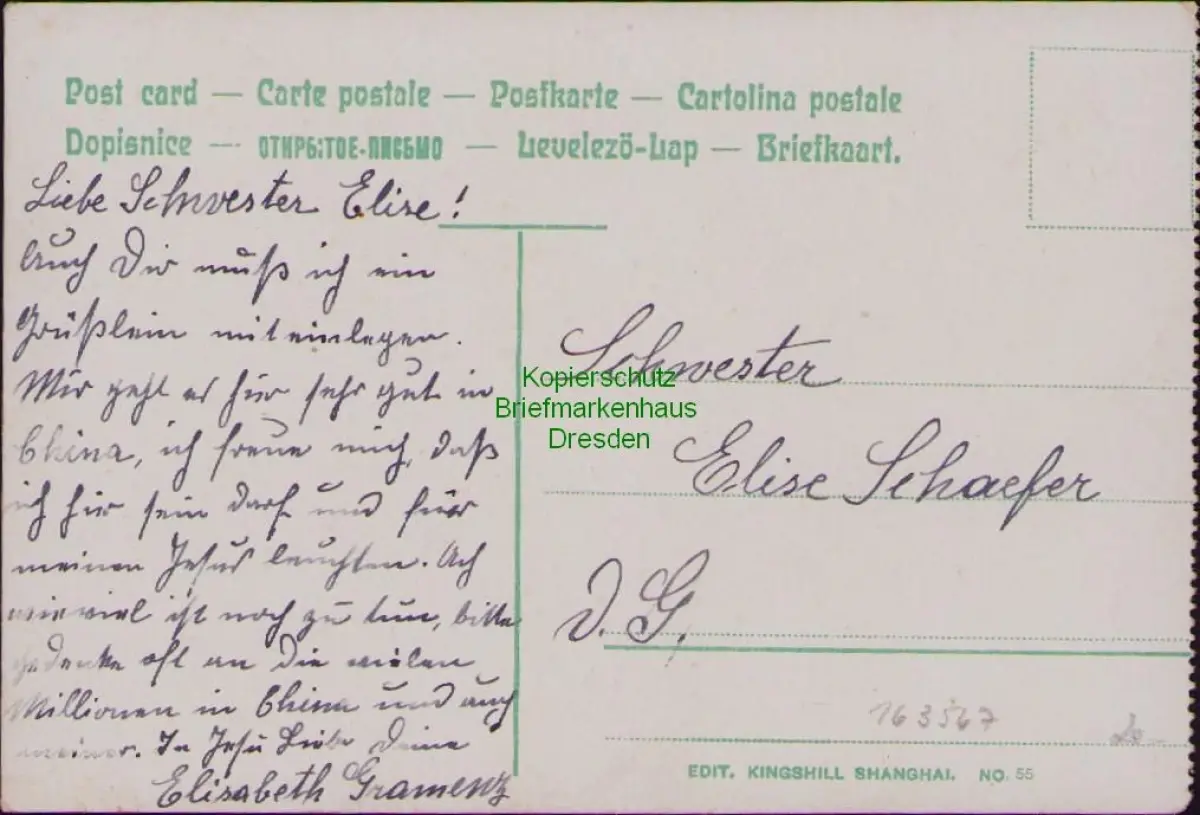 Post card — Carte postale — Postkarte — Cartolina postale
Dopisnice — ОТКРЫТОЕ-ПИСЬМО — Levelezö-Lap — Briefkaart.
Liebe Schwester Elise!
Auch Dir muß ich ein
Grüßlein mit einlegen.
Mir geht es hier sehr gut in
China, ich freue mich, daß
ich hier sein darf und für
meinen Jesus leuchten. Ach
wieviel ist noch zu tun, bitte
gedenke oft an die vielen
Millionen in China und auch
meiner. In Jesu Liebe Deine
Elisabeth Gramenz
Schwester
Elise Schaefer
D. G.
Kopierschutz
Briefmarkenhaus
Dresden
163567
EDIT. KINGSHILL SHANGHAI. NO. 55